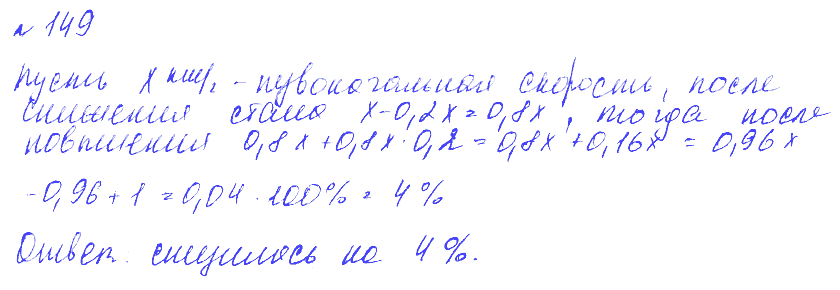 № 149
Пусть x км/ч - первоначальная скорость, после
снижения стала x-0,2x=0,8x, тогда после
повышения 0,8x+0,8x·0,2=0,8x+0,16x=0,96x
-0,96+1=0,04·100%=4%
Ответ. снизилась на 4%.